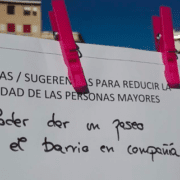 AS / SUGERENCIAS PARA REDUCIR LA
DAD DE LAS PERSONAS MAYORES
Poder dar un paseo
el barrio en compañía